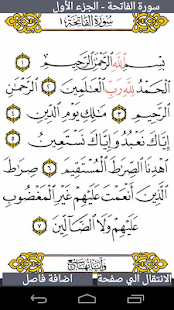 سورة الفاتحة - الجزء الأول
سُورَةُ الفَاتِحَةِ ١
بِسْمِ ٱللَّهِ ٱلرَّحْمَٰنِ ٱلرَّحِيمِ ١
ٱلْحَمْدُ لِلَّهِ رَبِّ ٱلْعَٰلَمِينَ ٢ ٱلرَّحْمَٰنِ
ٱلرَّحِيمِ ٣ مَٰلِكِ يَوْمِ ٱلدِّينِ ٤
إِيَّاكَ نَعْبُدُ وَإِيَّاكَ نَسْتَعِينُ ٥
ٱهْدِنَا ٱلصِّرَٰطَ ٱلْمُسْتَقِيمَ ٦ صِرَٰطَ
ٱلَّذِينَ أَنْعَمْتَ عَلَيْهِمْ غَيْرِ ٱلْمَغْضُوبِ
عَلَيْهِمْ وَلَا ٱلضَّآلِّينَ ٧
الانتقال الي صفحة
اضافة فاصل